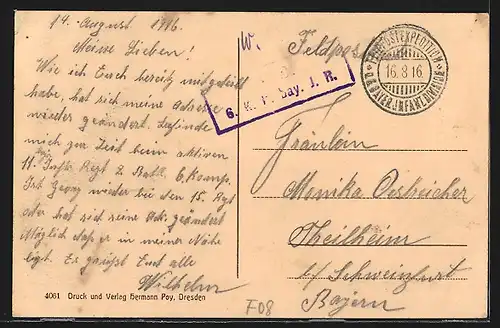 14. August 1916.
Meine Lieben!
Wie ich Euch bereits mitgeteilt
habe, hat sich meine Adresse
wieder geändert. Befinde
mich zur Zeit beim aktiven
11. Inft. Regt 2. Batl. 6. Komp.
Ist Georg wieder bei den 15. Regt
oder hat sich seine Adr. geändert
Möglich daß er in meiner Nähe
ligt. Es grüßt Euch alle
Wilhelm
4061 Druck und Verlag Hermann Poy, Dresden
Feldpost
6. K. Bay. J. R.
FELDPOSTEXPEDITION
16.8.16
BAYER.INFANT.DIVISION
Fräulein
Monika Oestreicher
Theilheim
b/ Schweinfurt
Bayern
F08